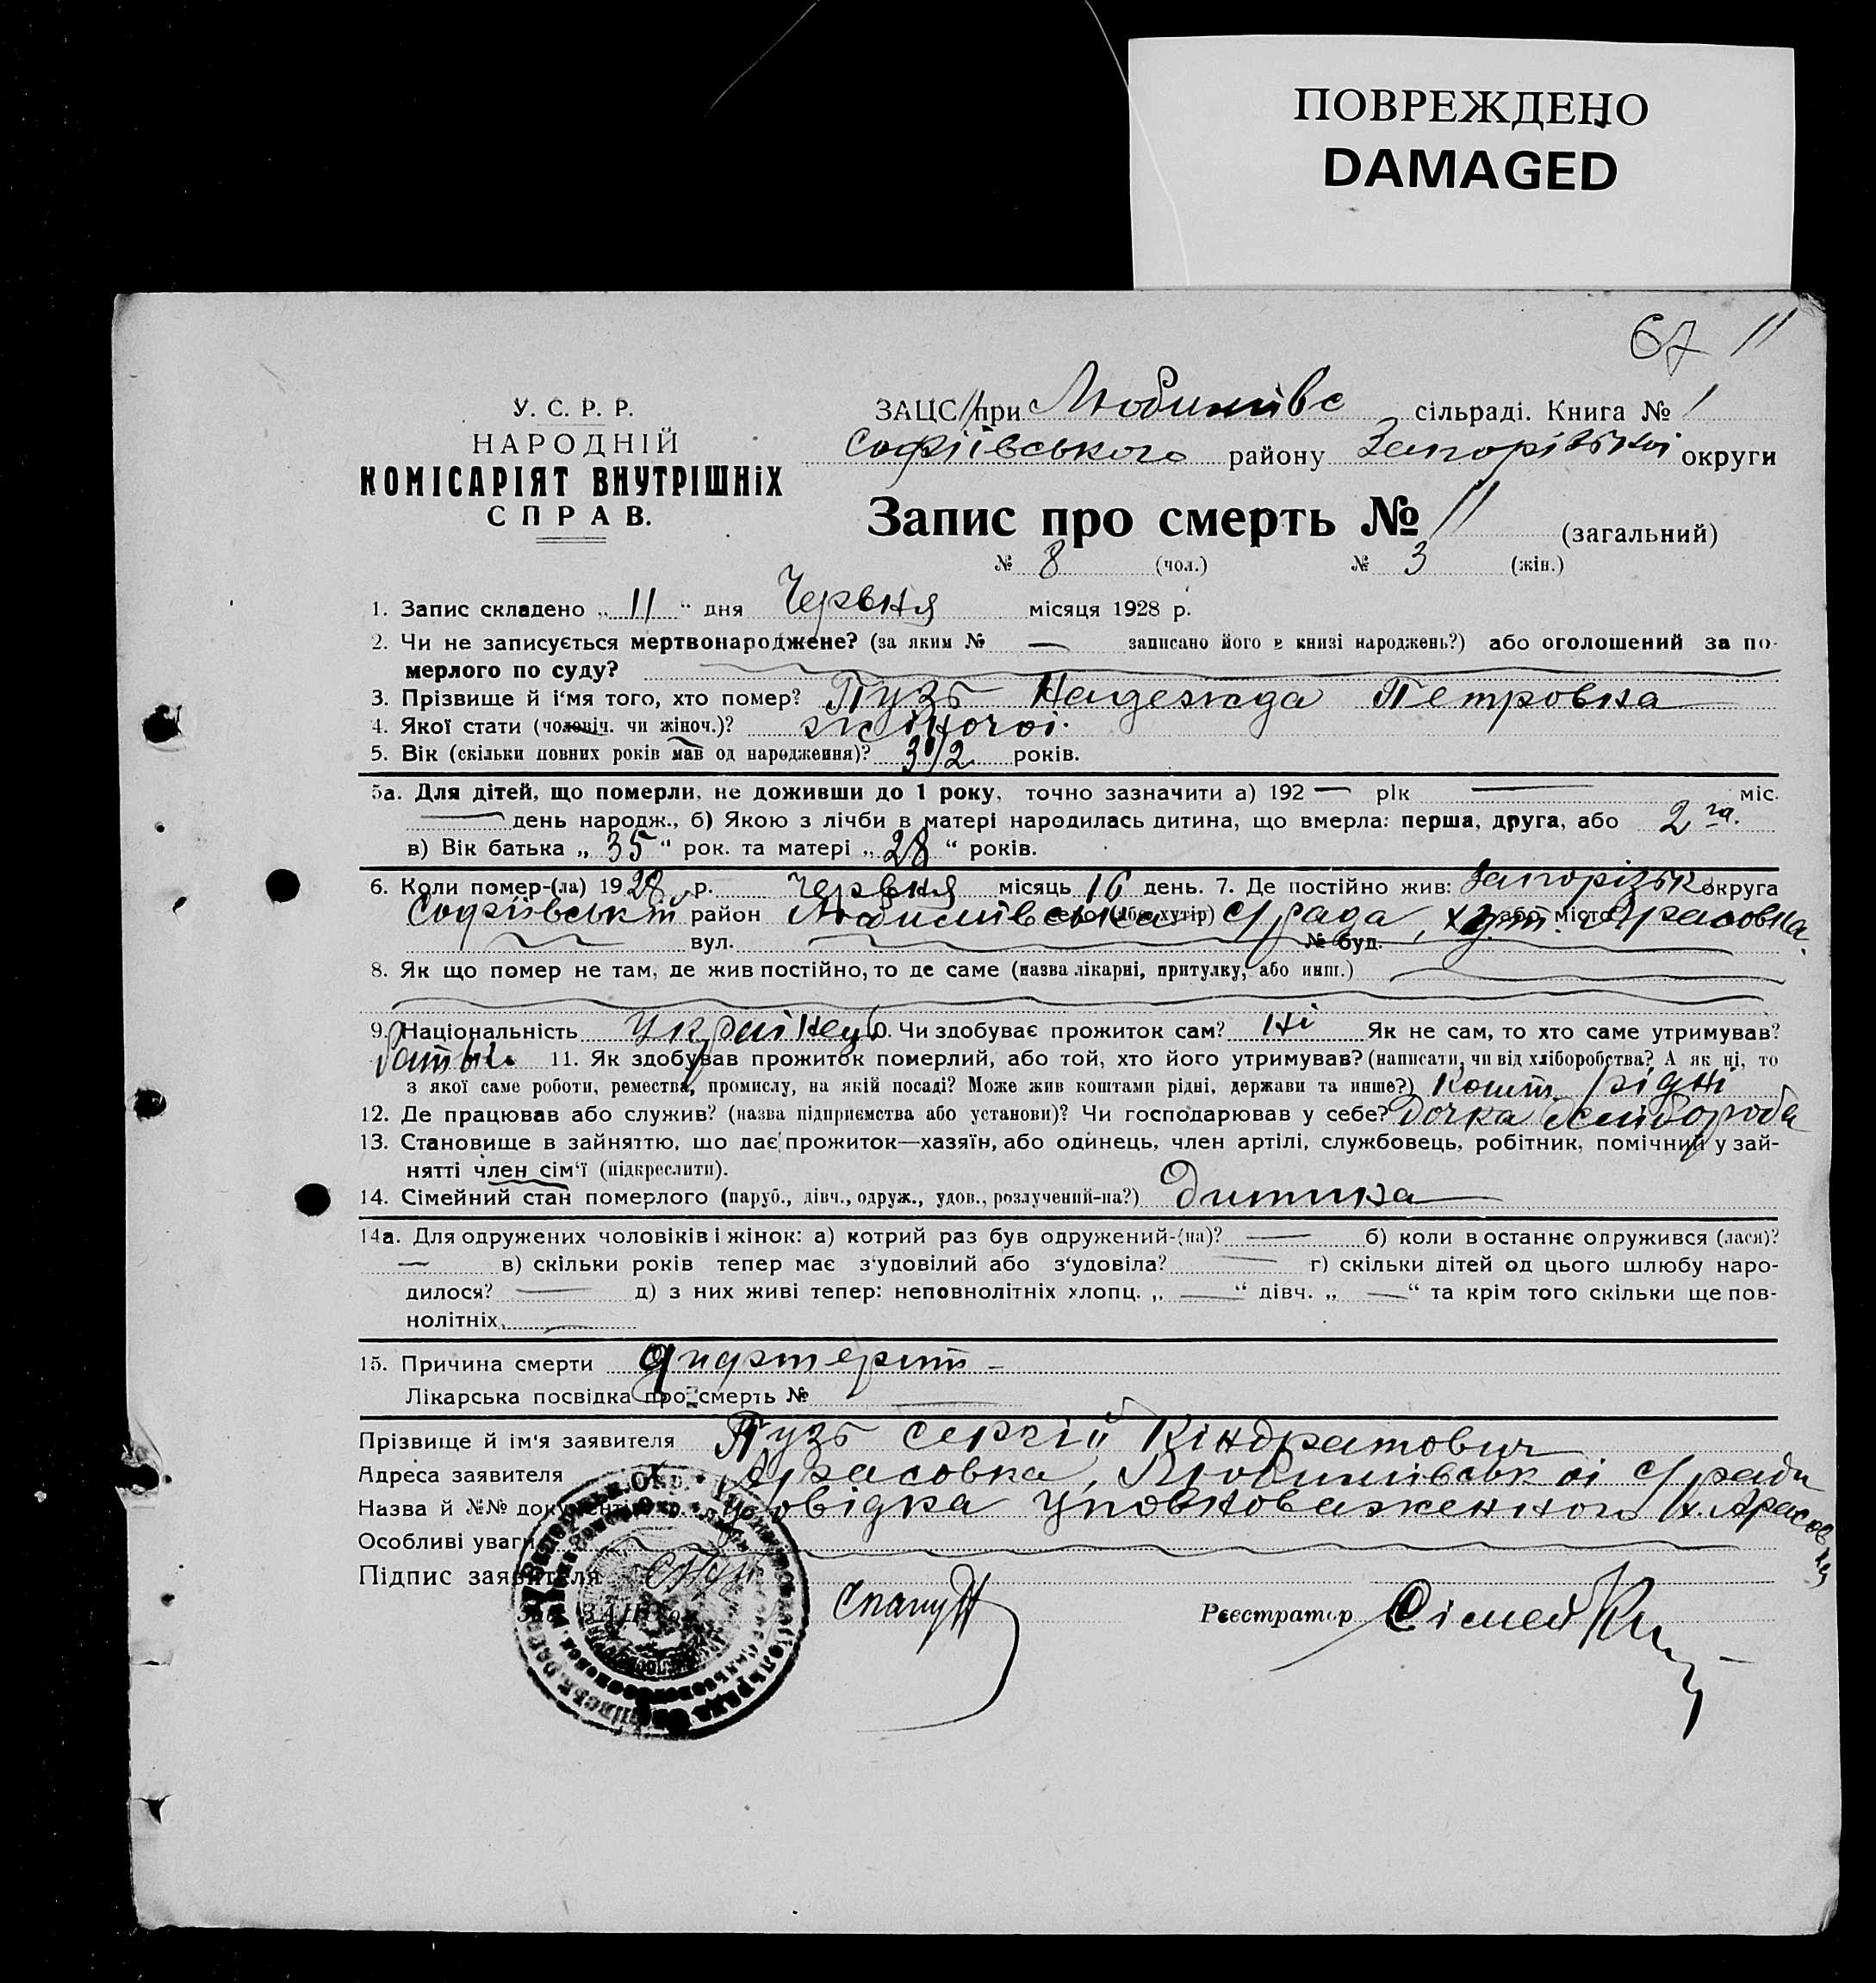 ПОВРЕЖДЕНО
DAMAGED
67 11
У. С. Р. Р.
НАРОДНІЙ
КОМІСАРІЯТ ВНУТРІШНІХ
СПРАВ.
ЗАЦС при Любимівс сільраді. Книга № 1
Софіївського району Запорізької округи
Запис про смерть № 11 (загальний)
№ 8 (чол.) № 3 (жін.)
1. Запис складено „ 11 “ дня Червня місяця 1928 р.
2. Чи не записується мертвонароджене? (за яким № — записано його в книзі народжень?) або оголошений за по-
мерлого по суду?
3. Прізвище й і'мя того, хто помер? Пузь Надежда Петровна
4. Якої стати (чоловіч. чи жіноч.)? жіночої.
5. Вік (скільки повних років мав од народження)? 3 1/2 років.
5а. Для дітей, що померли, не доживши до 1 року, точно зазначити а) 192 — рік — міс.
— день народж., б) Якою з лічби в матері народилась дитина, що вмерла: перша, друга, або 2 га.
в) Вік батька „ 35 “ рок. та матері „ 28 “ років.
6. Коли помер-(ла) 1928 р. Червня місяць 10 день. 7. Де постійно жив: Запорізьк округа
Софіївськ район Любимівська село (або хутір) с/рада, хут. або місто
вул. № буд.
8. Як що помер не там, де жив постійно, то де саме (назва лікарні, притулку, або инш.)
9. Національність Українець 10. Чи здобуває прожиток сам? ні Як не сам, то хто саме утримував?
11. Як здобував прожиток померлий, або той, хто його утримував? (написати, чи від хліборобства? А як ні, то
з якої саме роботи, ремества, промислу, на якій посаді? Може жив коштами рідні, держави та инше?) Кошт. рідні
12. Де працював або служив? (назва підприємства або установи)? Чи господарював у себе? Дочка хлібороба
13. Становище в зайняттю, що дає прожиток—хазяїн, або одинець, член артілі, службовець, робітник, помічний у зай-
нятті член сім'ї (підкреслити).
14. Сімейний стан померлого (паруб., дівч., одруж., удов., розлучений-на?) Дитина
14а. Для одружених чоловіків і жінок: а) котрий раз був одружений-(на)? — б) коли востаннє одружився (лася)?
— в) скільки років тепер має з'удовілий або з'удовіла? — г) скільки дітей од цього шлюбу наро-
дилося? — д) з них живі тепер: неповнолітніх хлопц. „ — “ дівч. „ — “ та крім того скільки ще пов-
нолітніх —
15. Причина смерти Дифтерит
Лікарська посвідка про смерть № —
Прізвище й ім'я заявителя Пузь Сергій Кіндратович
Адреса заявителя Любимівської с/ради
Назва й №№ документів довідка уповноваженного
Особливі уваги
Підпис заявителя
Реєстратор